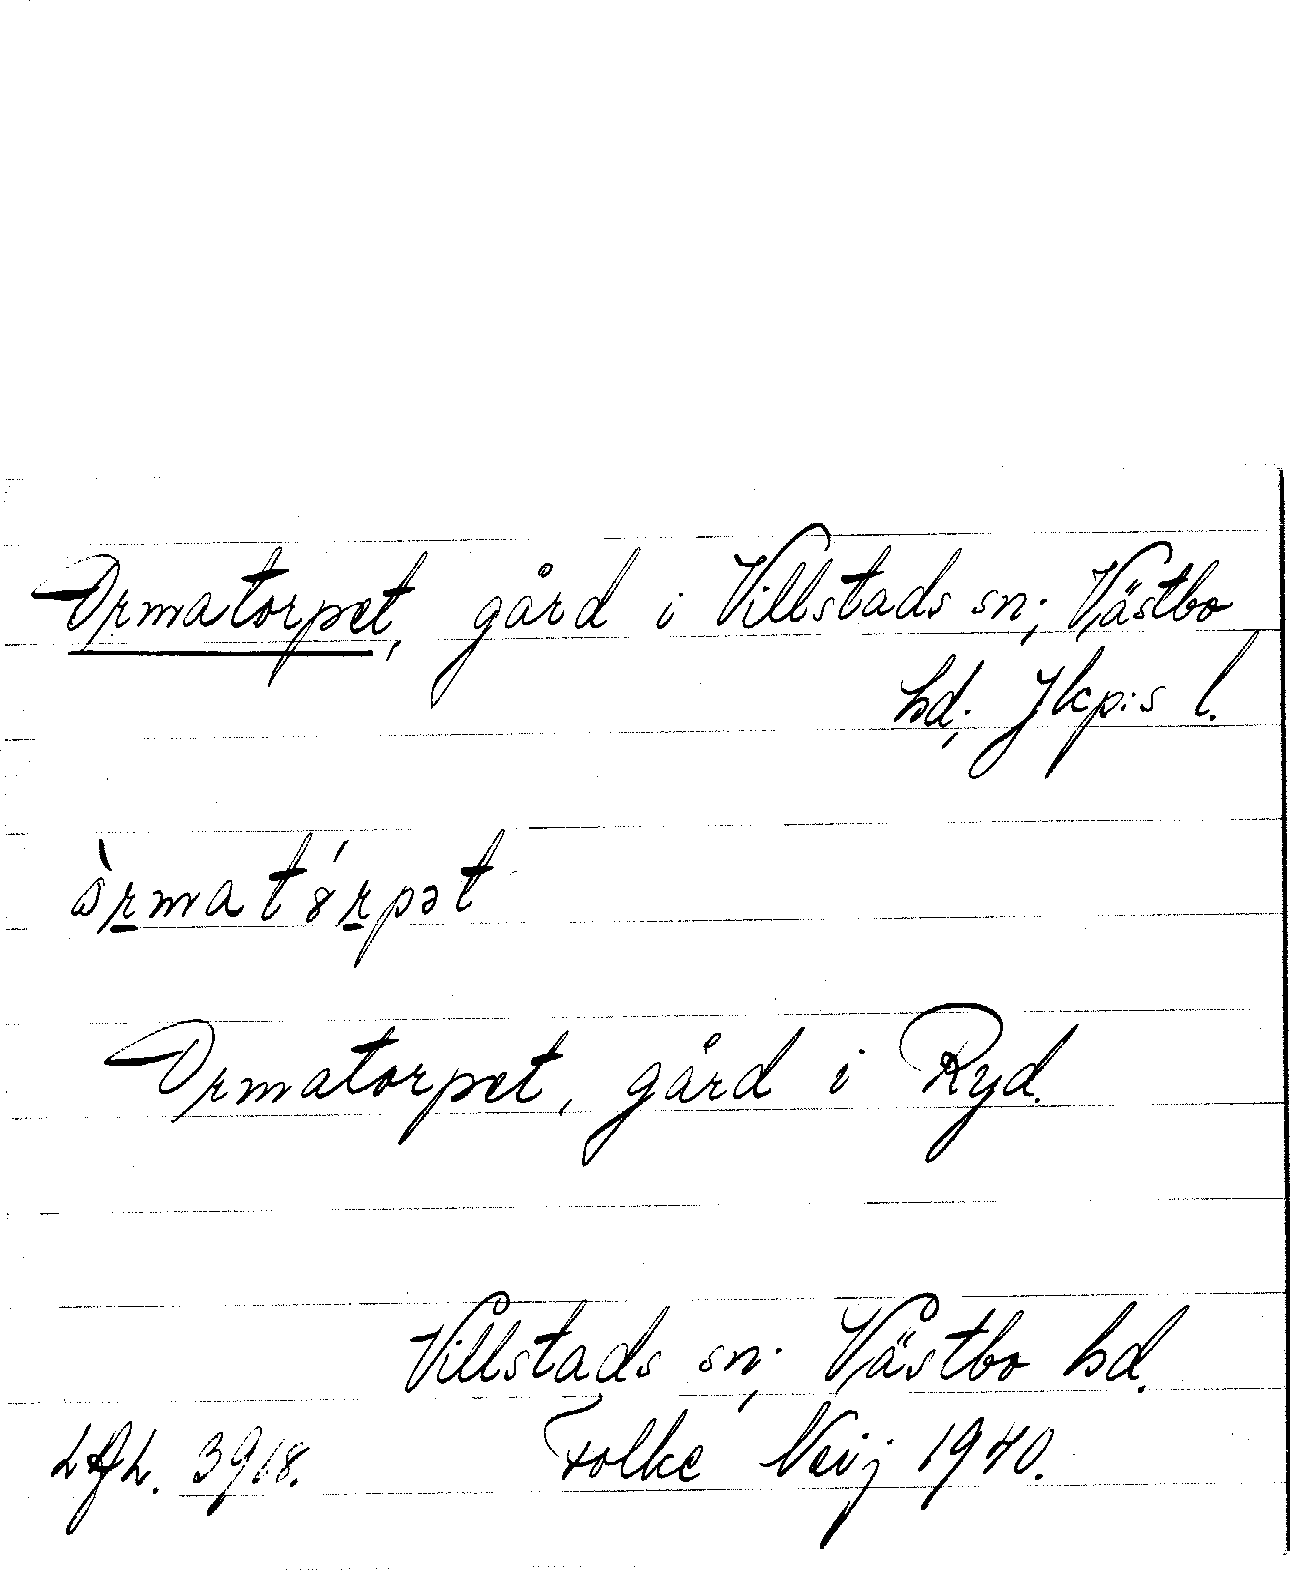 Ormatorpet, gård i Villstads sn; Västbo
hd; Jkp:s l.
Ormatorpet, gård i Ryd.
Villstads sn; Västbo hd.
3918. Folke Neij 1940.